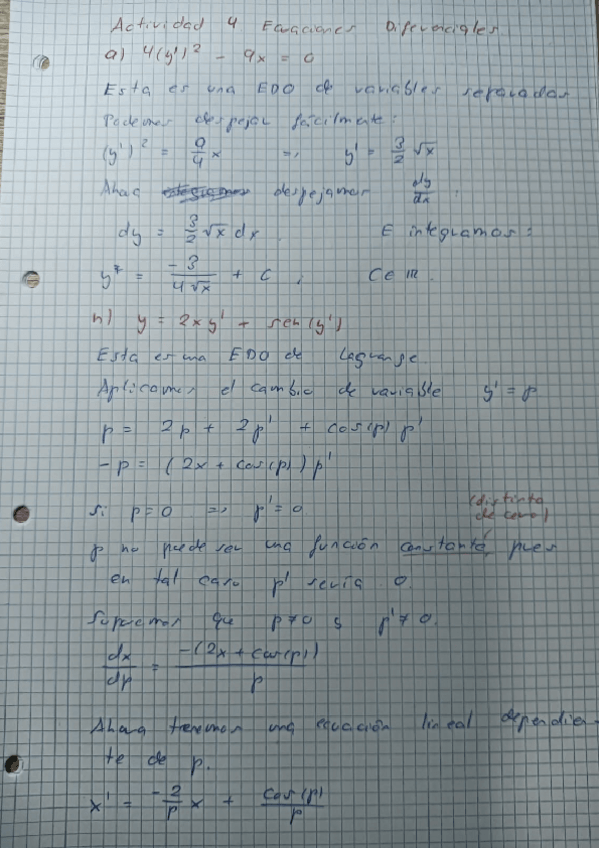 Actividad 4 Ecuaciones Diferenciales
a) 4(y')² - 9x = 0
Esta es una EDO de variables separadas
Podemos despejar fácilmente:
(y')² = 9/4 x => y' = 3/2 √x
Ahora despejamos dy/dx
dy = 3/2 √x dx. E integramos:
y = -3/(4√x) + C, C ∈ ℝ.
h) y = 2xy' + sen(y')
Esta es una EDO de Lagrange
Aplicamos el cambio de variable y' = p
p = 2p + 2p' + cos(p) p'
-p = (2x + cos(p)) p'
Si p=0 => p'=0
(distinta de cero)
p no puede ser una función constante, pues
en tal caso p' sería 0.
Suponemos que p≠0 y p'≠0.
dx/dp = -(2x+cos(p))/p
Ahora tenemos una ecuación lineal dependien-
te de p.
x' = -2/p x + cos(p)/p